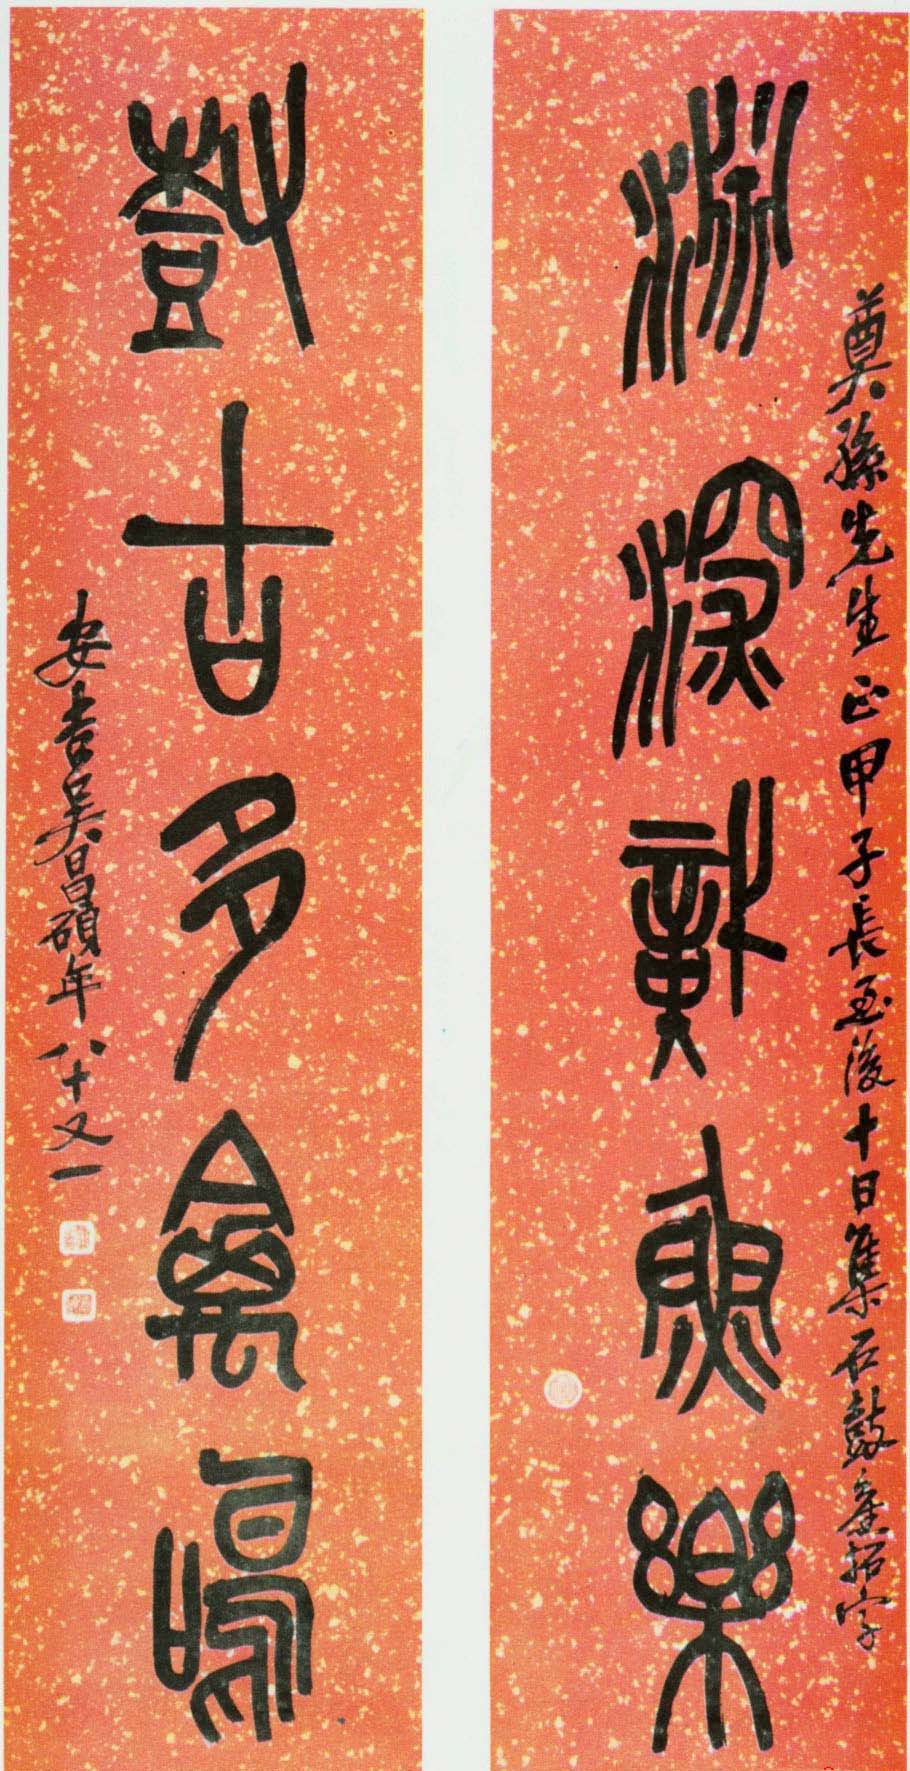 淵深戠魚樂
奠孫先生正甲子長至後十日集石鼓拓字
尌古多禽鳴
安吉吳昌碩年八十又一